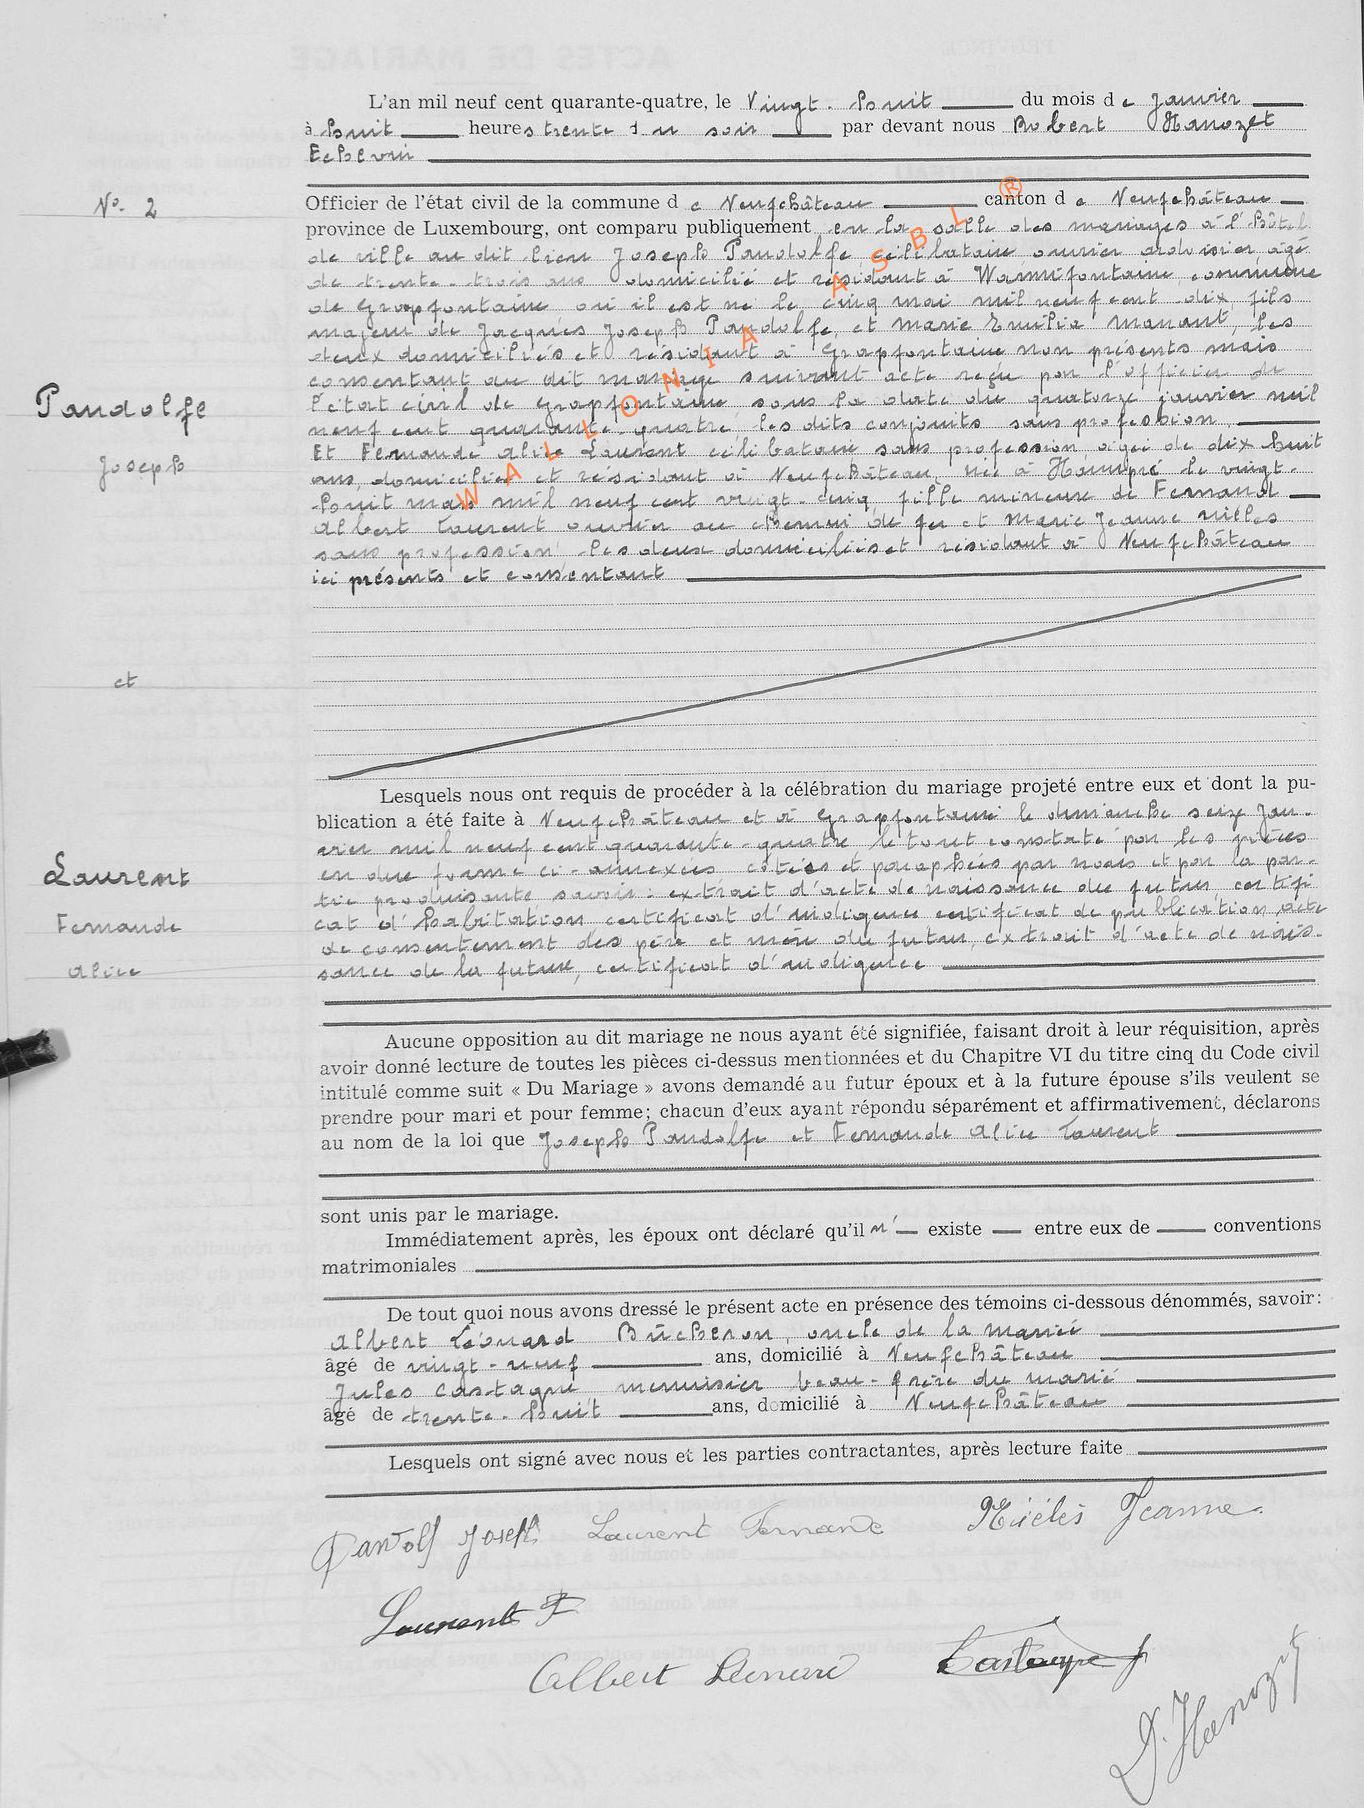 L'an mil neuf cent quarante-quatre, le Vingt-huit du mois de Janvier
à huit heures trente du soir par devant nous Robert Hanozet
Echevin
Nº. 2
Officier de l'état civil de la commune de Neufchâteau canton de Neufchâteau
province de Luxembourg, ont comparu publiquement en la salle des mariages à l'hôtel
de ville au dit lieu Joseph Pandolfe célibataire ouvrier ardoisier, âgé
de trente-trois ans domicilié et résidant à Warmifontaine, commune
de Grapfontaine où il est né le cinq mai mil neuf cent dix, fils
majeur de Jacques Joseph Pandolfe, et Marie Emilia Manant, les
deux domiciliés et résidant à Grapfontaine non présents mais
consentant au dit mariage suivant acte reçu par l'officier de
Pandolfe
l'état civil de Grapfontaine sous la date du quatorze janvier mil
neuf cent quarante-quatre, les dits conjoints sans profession,
Et Fernande Alice Laurent célibataire sans profession âgée de dix huit
Joseph
ans, domiciliée et résidant à Neufchâteau, née à Hamipré le vingt-
huit mars mil neuf cent vingt-cinq, fille mineure de Fernand
Albert Laurent ouvrier au chemin de fer et Marie Jeanne Milles
sans profession les deux domiciliés et résidant à Neufchâteau
ici présents et consentant
WALLONIA ASBL ®
et
Lesquels nous ont requis de procéder à la célébration du mariage projeté entre eux et dont la pu-
blication a été faite à Neufchâteau et à Grapfontaine le dimanche seize Jan-
vier mil neuf cent quarante-quatre, le tout constaté par les pièces
en due forme ci-annexées, cotées et paraphées par nous et par la par-
Laurent
tie produisante savoir: extrait d'acte de naissance du futur, certifi
cat d'habitation certificat d'indigence certificat de publication, acte
Fernande
de consentement des père et mère du futur, extrait d'acte de nais-
Alice
sance de la future, certificat d'indigence
Aucune opposition au dit mariage ne nous ayant été signifiée, faisant droit à leur réquisition, après
avoir donné lecture de toutes les pièces ci-dessus mentionnées et du Chapitre VI du titre cinq du Code civil
intitulé comme suit « Du Mariage » avons demandé au futur époux et à la future épouse s'ils veulent se
prendre pour mari et pour femme; chacun d'eux ayant répondu séparément et affirmativement, déclarons
au nom de la loi que Joseph Pandolfe et Fernande Alice Laurent
sont unis par le mariage.
Immédiatement après, les époux ont déclaré qu'il n' existe entre eux de conventions
matrimoniales
De tout quoi nous avons dressé le présent acte en présence des témoins ci-dessous dénommés, savoir:
Albert Léonard Bûcheron, oncle de la mariée
âgé de vingt-neuf ans, domicilié à Neufchâteau
Jules Castagne menuisier beau-frère du marié
âgé de trente-huit ans, domicilié à Neufchâteau
Lesquels ont signé avec nous et les parties contractantes, après lecture faite
Pandolf Joseph Laurent Fernande Jeanne
Laurent F
Albert Léonard Castagne J
Hanozet